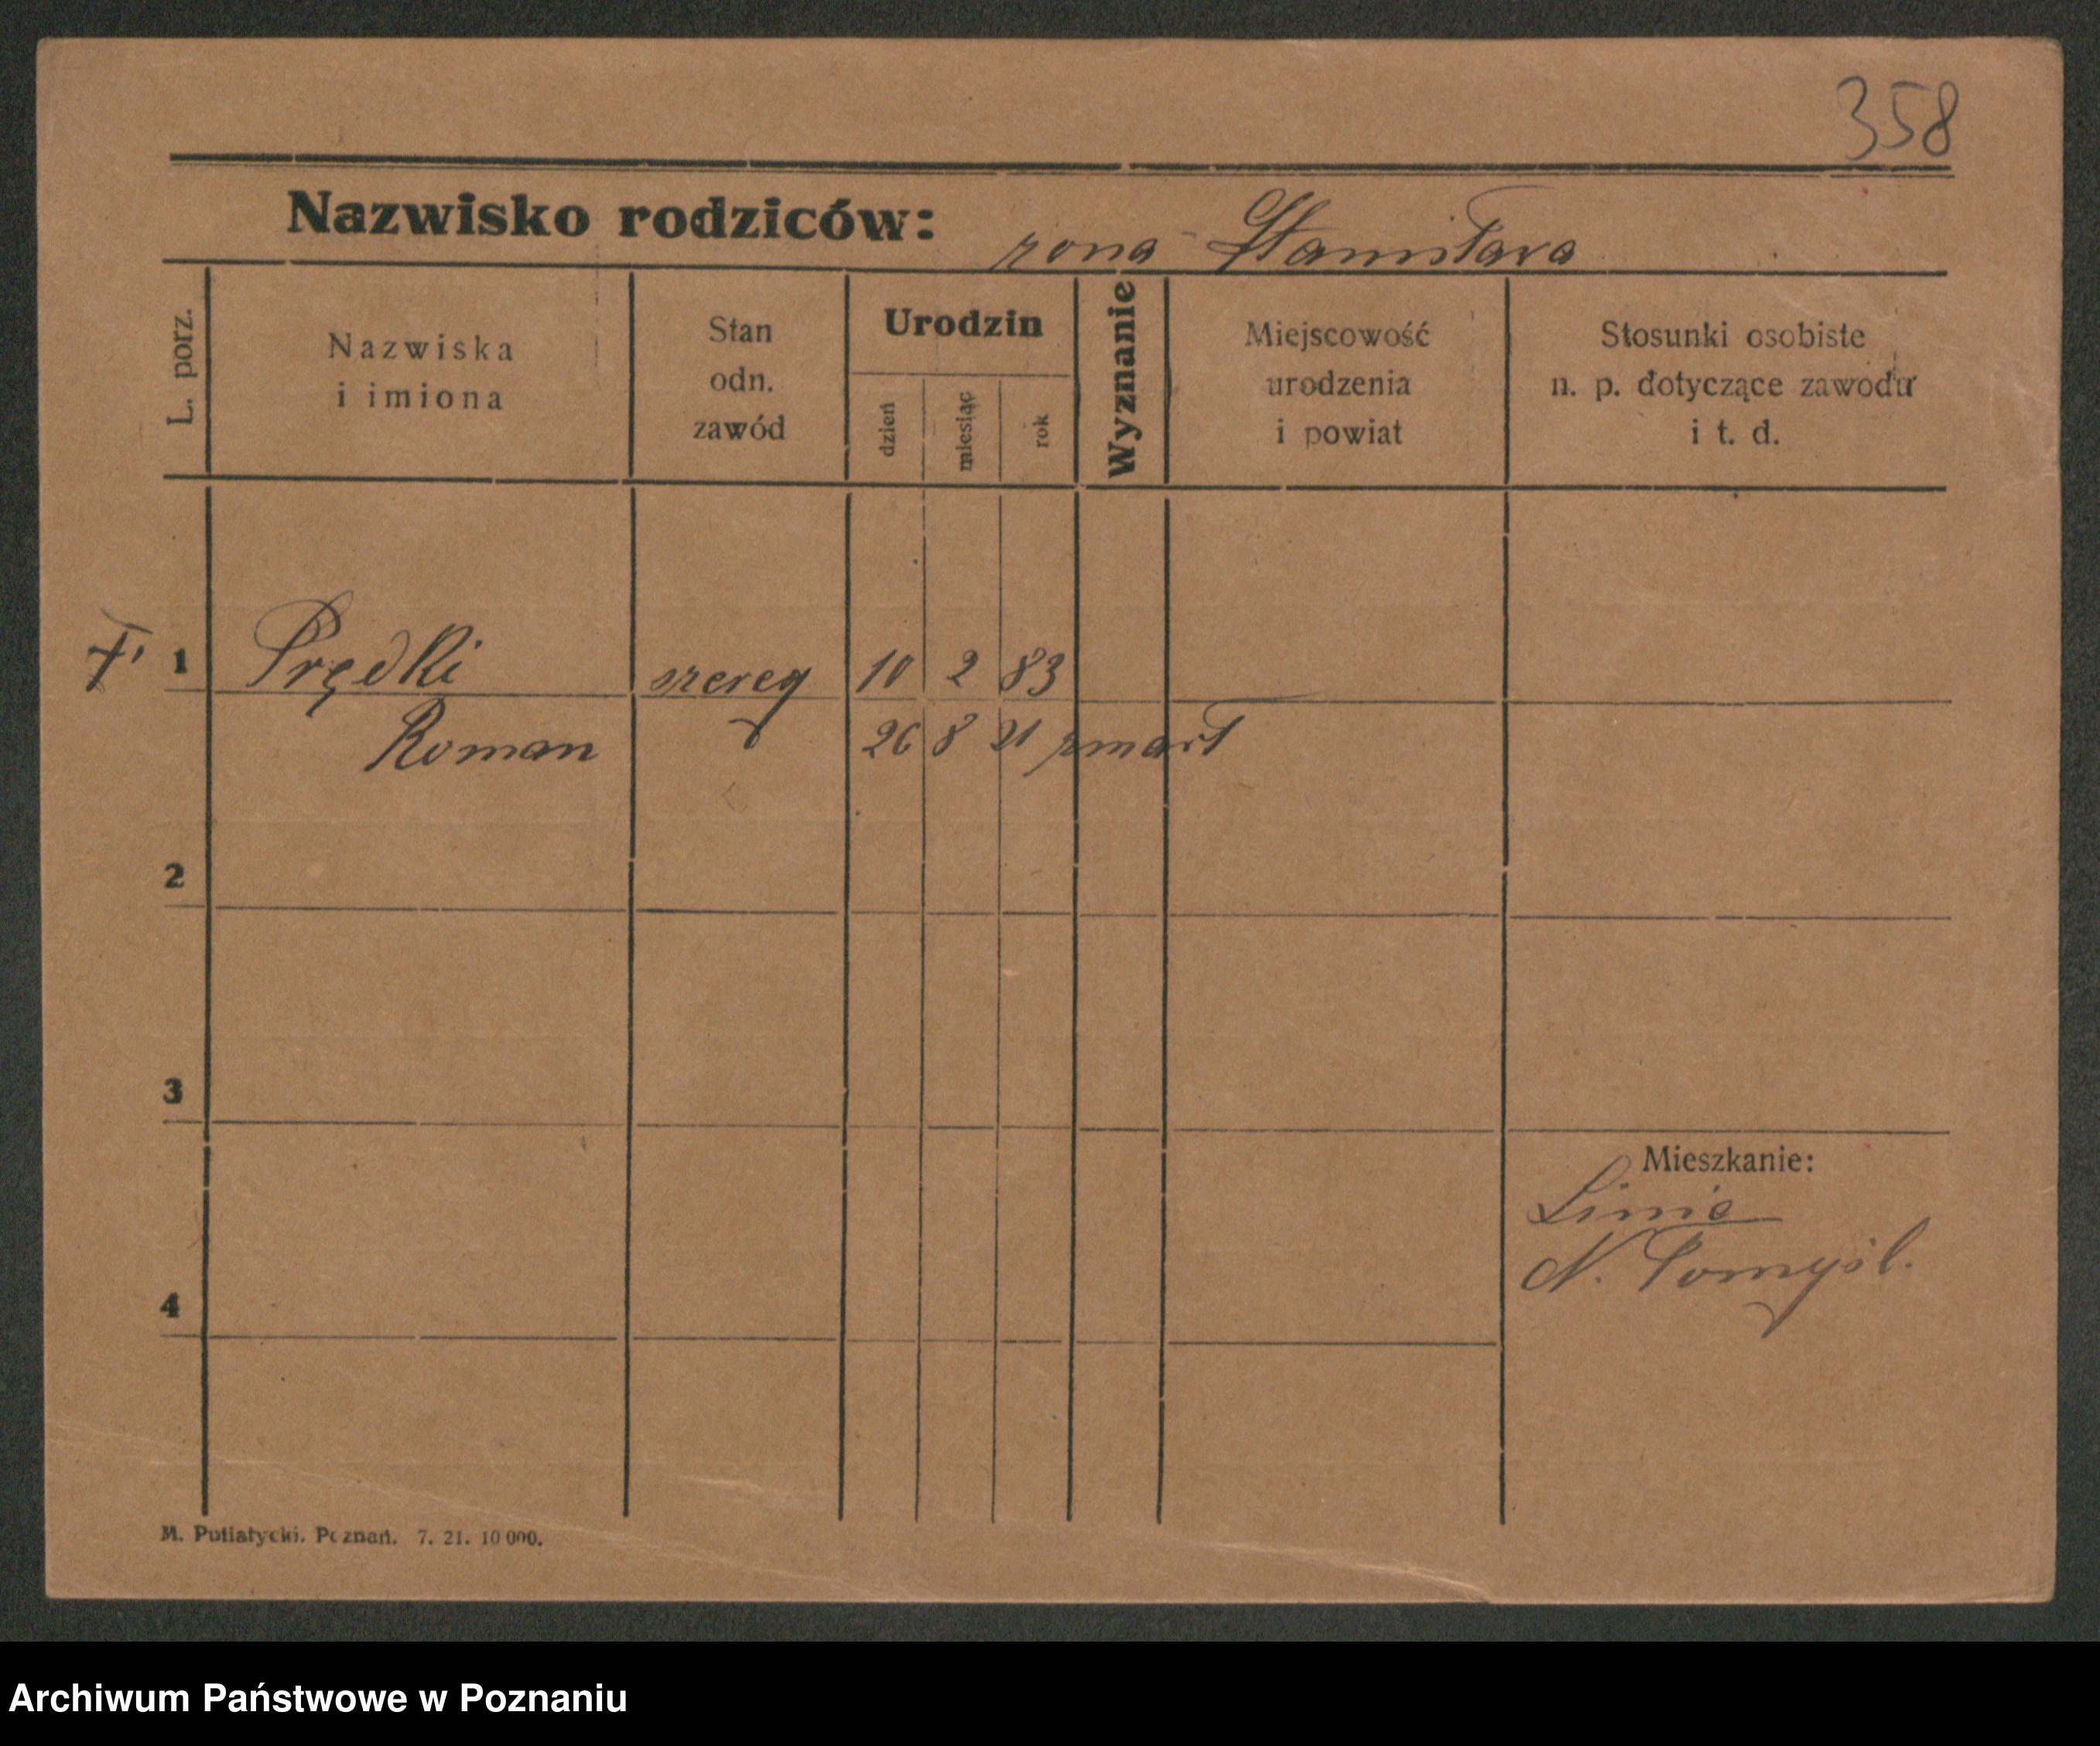 358
Nazwisko rodziców: żona Stanisława
L. porz.
Nazwiska
i imiona
Stan
odn.
zawód
Urodzin
dzień
miesiąc
rok
Wyznanie
Miejscowość
urodzenia
i powiat
Stosunki osobiste
n. p. dotyczące zawodu
i t. d.
1 Prędki szereg 10 2 83
Roman 26 8 21 zmarł
2
3
Mieszkanie:
Linie
N. Tomyśl.
4
M. Putiatycki. Poznań. 7. 21. 10 000.
Archiwum Państwowe w Poznaniu